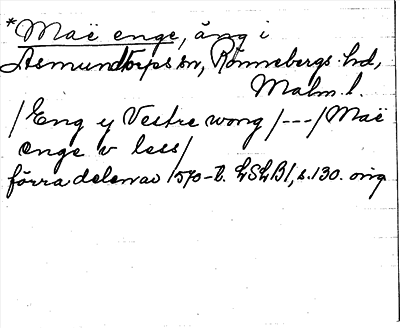 *Maë enge, äng i
Asmundtorps sn, Rönnebergs hd,
Malm. l.
/Eng y Vestre wong /---/ Maë
enge v less/
förra delen av 1570-t. LSLB1, s. 130. orig